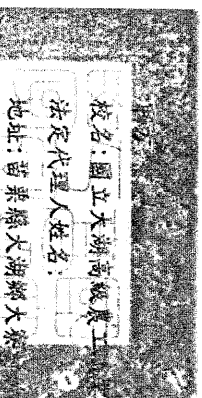 校名：國立大湖高級農工
法定代理人姓名：
地址：苗栗縣大湖鄉大寮